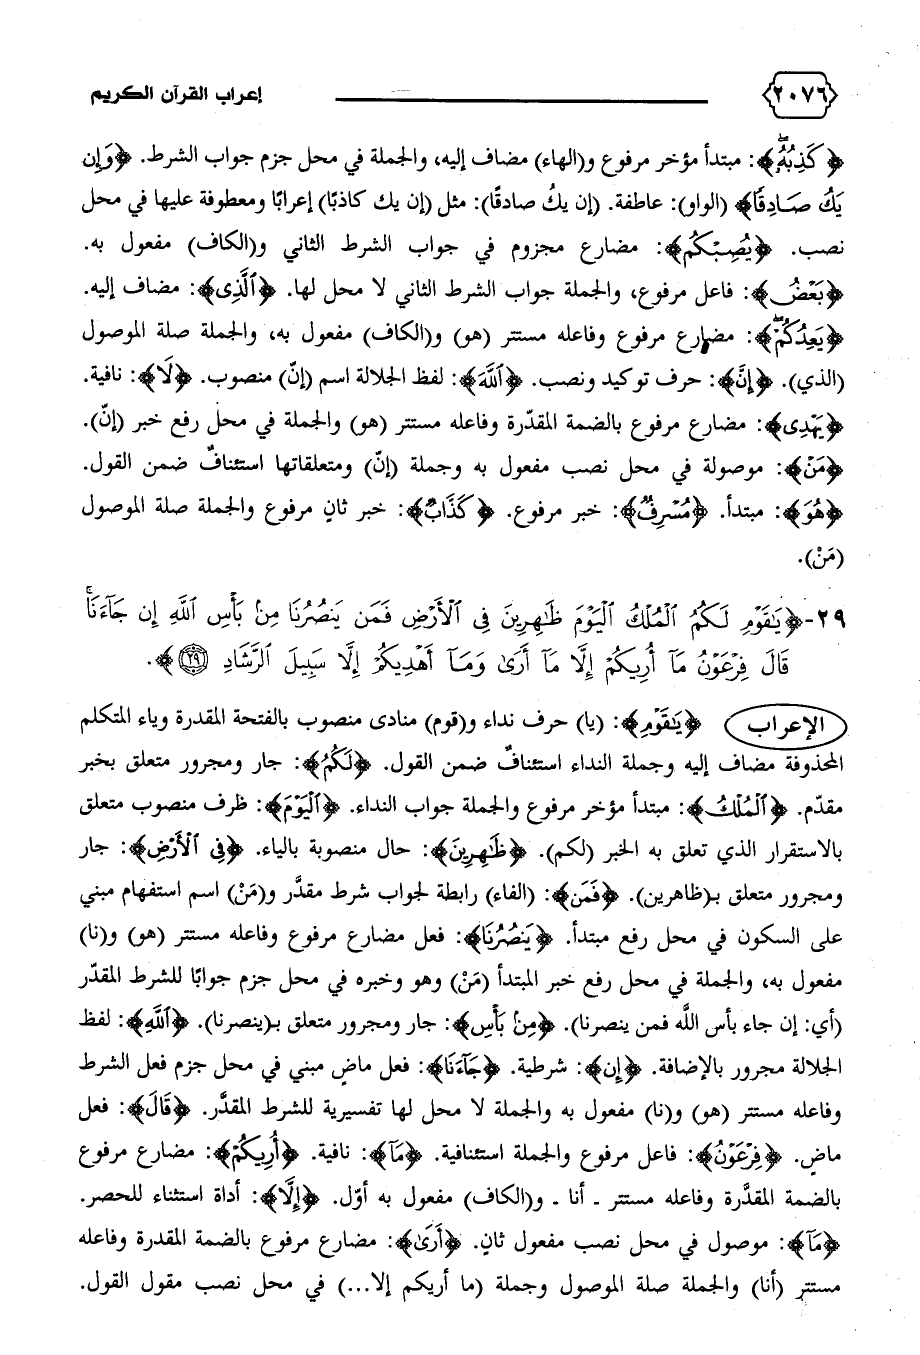 ٢٠٧٦ إعراب القرآن الكريم
﴿كَذِبُهُۥۖ﴾: مبتدأ مؤخر مرفوع و(الهاء) مضاف إليه، والجملة في محل جزم جواب الشرط. ﴿وَإِن
يَكُ صَادِقًا﴾ (الواو): عاطفة. (إن يكُ صادقًا): مثل (إن يك كاذبًا) إعرابًا ومعطوفة عليها في محل
نصب. ﴿يُصِبْكُم﴾: مضارع مجزوم في جواب الشرط الثاني و(الكاف) مفعول به.
﴿بَعْضُ﴾: فاعل مرفوع، والجملة جواب الشرط الثاني لا محل لها. ﴿ٱلَّذِى﴾: مضاف إليه.
﴿يَعِدُكُمْۖ﴾: مضارع مرفوع وفاعله مستتر (هو) و(الكاف) مفعول به، والجملة صلة الموصول
(الذي). ﴿إِنَّ﴾: حرف توكيد ونصب. ﴿ٱللَّهَ﴾: لفظ الجلالة اسم (إنّ) منصوب. ﴿لَا﴾: نافية.
﴿يَهْدِى﴾: مضارع مرفوع بالضمة المقدّرة وفاعله مستتر (هو) والجملة في محل رفع خبر (إنّ).
﴿مَنْ﴾: موصولة في محل نصب مفعول به وجملة (إنّ) ومتعلقاتها استئنافٌ ضمن القول.
﴿هُوَ﴾: مبتدأ. ﴿مُسْرِفٌ﴾: خبر مرفوع. ﴿كَذَّابٌ﴾: خبر ثانٍ مرفوع والجملة صلة الموصول
(مَنْ).
٢٩-﴿يَٰقَوْمِ لَكُمُ ٱلْمُلْكُ ٱلْيَوْمَ ظَٰهِرِينَ فِى ٱلْأَرْضِ فَمَن يَنصُرُنَا مِنۢ بَأْسِ ٱللَّهِ إِن جَآءَنَاۚ
قَالَ فِرْعَوْنُ مَآ أُرِيكُمْ إِلَّا مَآ أَرَىٰ وَمَآ أَهْدِيكُمْ إِلَّا سَبِيلَ ٱلرَّشَادِ ٢٩﴾.
الإعراب ﴿يَٰقَوْمِ﴾: (يا) حرف نداء و(قوم) منادى منصوب بالفتحة المقدرة وياء المتكلم
المحذوفة مضاف إليه وجملة النداء استئنافٌ ضمن القول. ﴿لَكُمُ﴾: جار ومجرور متعلق بخبر
مقدّم. ﴿ٱلْمُلْكُ﴾: مبتدأ مؤخر مرفوع والجملة جواب النداء. ﴿ٱلْيَوْمَ﴾: ظرف منصوب متعلق
بالاستقرار الذي تعلق به الخبر (لكم). ﴿ظَٰهِرِينَ﴾: حال منصوبة بالياء. ﴿فِى ٱلْأَرْضِ﴾: جار
ومجرور متعلق بـ(ظاهرين). ﴿فَمَن﴾: (الفاء) رابطة لجواب شرط مقدَّر و(مَنْ) اسم استفهام مبني
على السكون في محل رفع مبتدأ. ﴿يَنصُرُنَا﴾: فعل مضارع مرفوع وفاعله مستتر (هو) و(نا)
مفعول به، والجملة في محل رفع خبر المبتدأ (مَنْ) وهو وخبره في محل جزم جوابًا للشرط المقدّر
(أي: إن جاء بأس اللَّه فمن ينصرنا). ﴿مِنۢ بَأْسِ﴾: جار ومجرور متعلق بـ(ينصرنا). ﴿ٱللَّهِ﴾: لفظ
الجلالة مجرور بالإضافة. ﴿إِن﴾: شرطية. ﴿جَآءَنَا﴾: فعل ماضٍ مبني في محل جزم فعل الشرط
وفاعله مستتر (هو) و(نا) مفعول به والجملة لا محل لها تفسيرية للشرط المقدَّر. ﴿قَالَ﴾: فعل
ماضٍ. ﴿فِرْعَوْنُ﴾: فاعل مرفوع والجملة استئنافية. ﴿مَآ﴾: نافية. ﴿أُرِيكُمْ﴾: مضارع مرفوع
بالضمة المقدَّرة وفاعله مستتر ـ أنا ـ و(الكاف) مفعول به أوّل. ﴿إِلَّا﴾: أداة استثناء للحصر.
﴿مَآ﴾: موصول في محل نصب مفعول ثانٍ. ﴿أَرَىٰ﴾: مضارع مرفوع بالضمة المقدرة وفاعله
مستتر (أنا) والجملة صلة الموصول وجملة (ما أريكم إلا...) في محل نصب مقول القول.